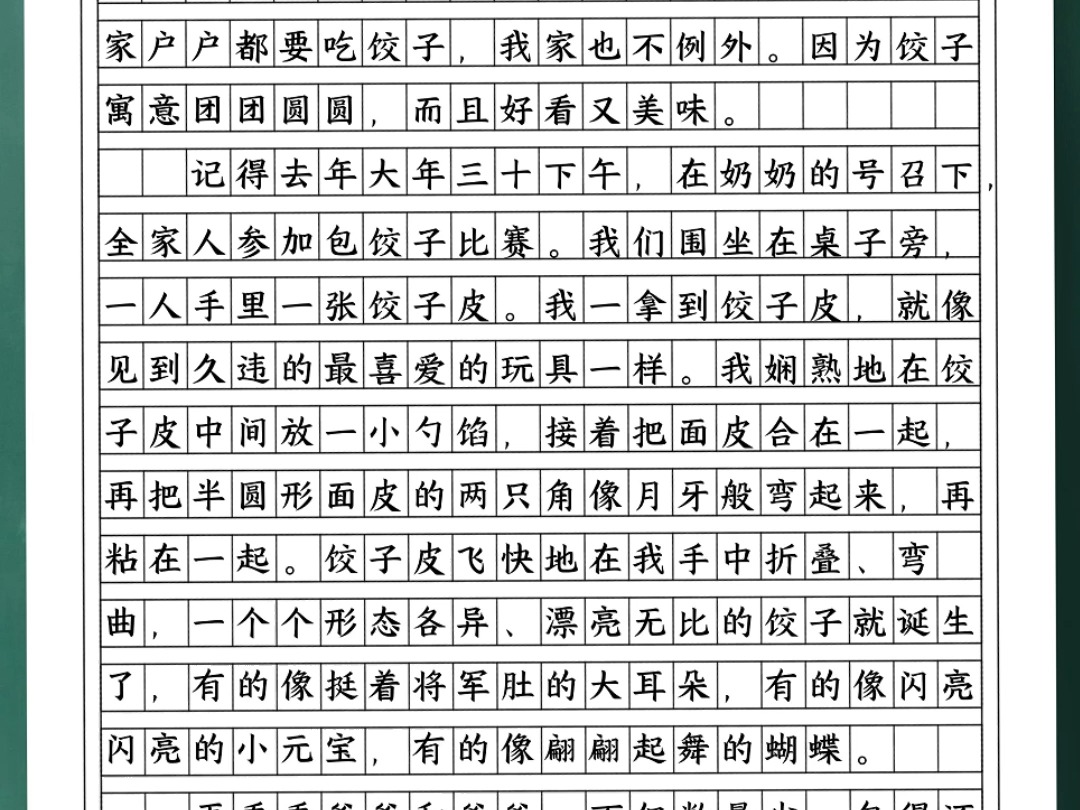 家户户都要吃饺子，我家也不例外。因为饺子
寓意团团圆圆，而且好看又美味。
记得去年大年三十下午，在奶奶的号召下，
全家人参加包饺子比赛。我们围坐在桌子旁，
一人手里一张饺子皮。我一拿到饺子皮，就像
见到久违的最喜爱的玩具一样。我娴熟地在饺
子皮中间放一小勺馅，接着把面皮合在一起，
再把半圆形面皮的两只角像月牙般弯起来，再
粘在一起。饺子皮飞快地在我手中折叠、弯
曲，一个个形态各异、漂亮无比的饺子就诞生
了，有的像挺着将军肚的大耳朵，有的像闪亮
闪亮的小元宝，有的像翩翩起舞的蝴蝶。